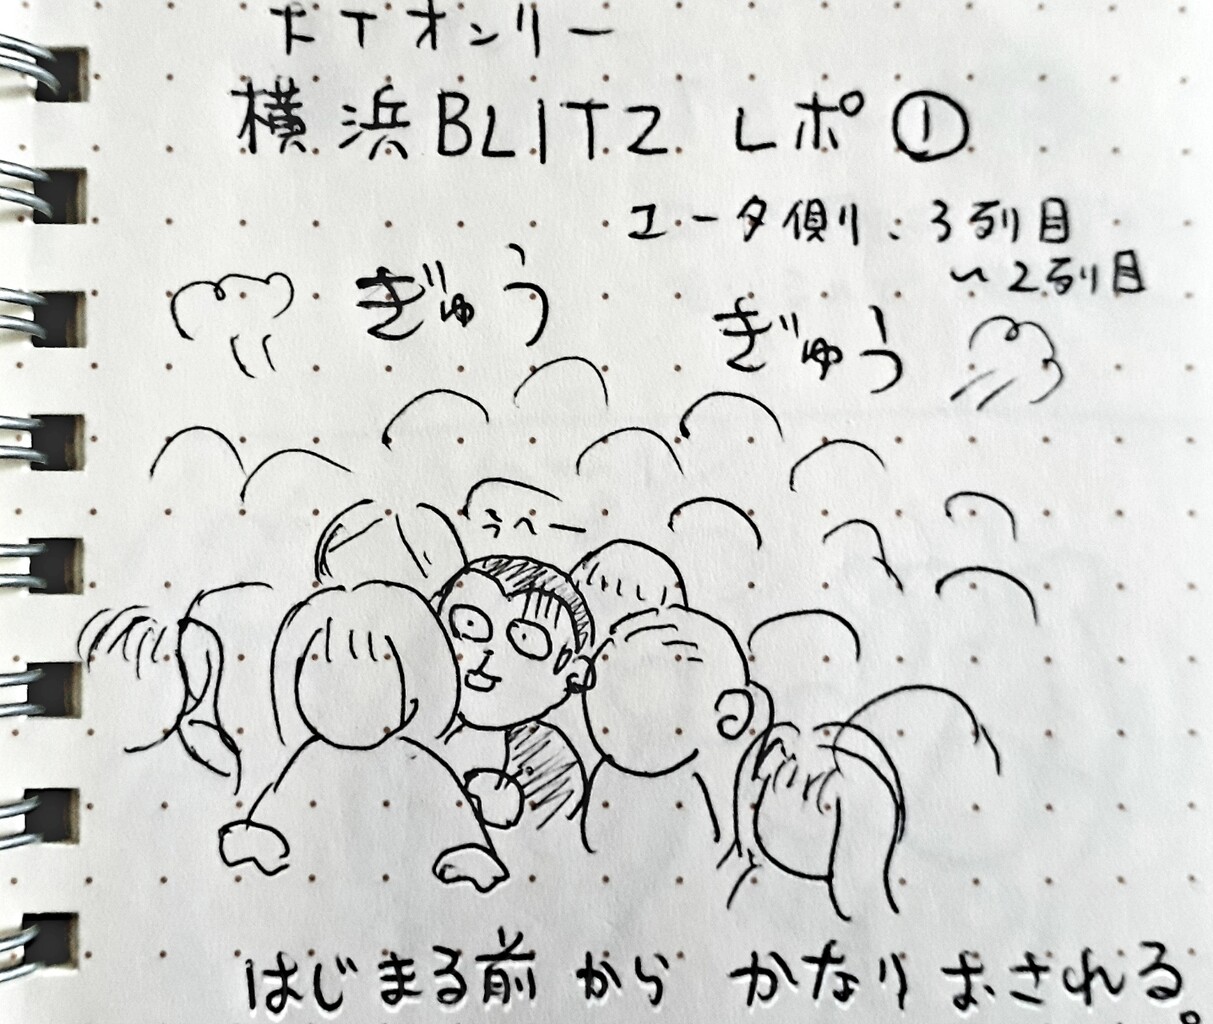 FTオンリー
横浜BLITZ レポ①
ユータ側、3列目
〜2列目
ぎゅう
ぎゅう
うへー
はじまる前から かなりおされる。